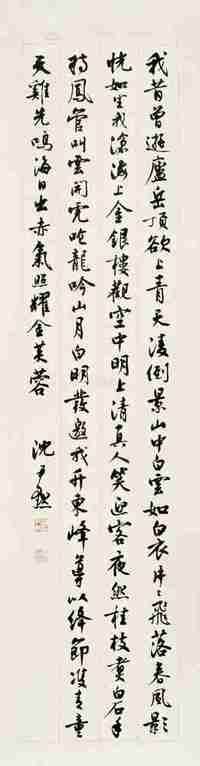 我昔曾遊廬岳頂欲上青天淩倒景山中白雲如白衣片片飛落春風影
恍如坐我滄海上金銀樓觀空中明上清真人笑迎客夜然桂枝煮白石手
持鳳管叫雲開宛咤龍吟山月白明發邀我升東峰導以絳節雙青童
天雞先鳴海日出赤氣照耀金芙蓉
沈尹默